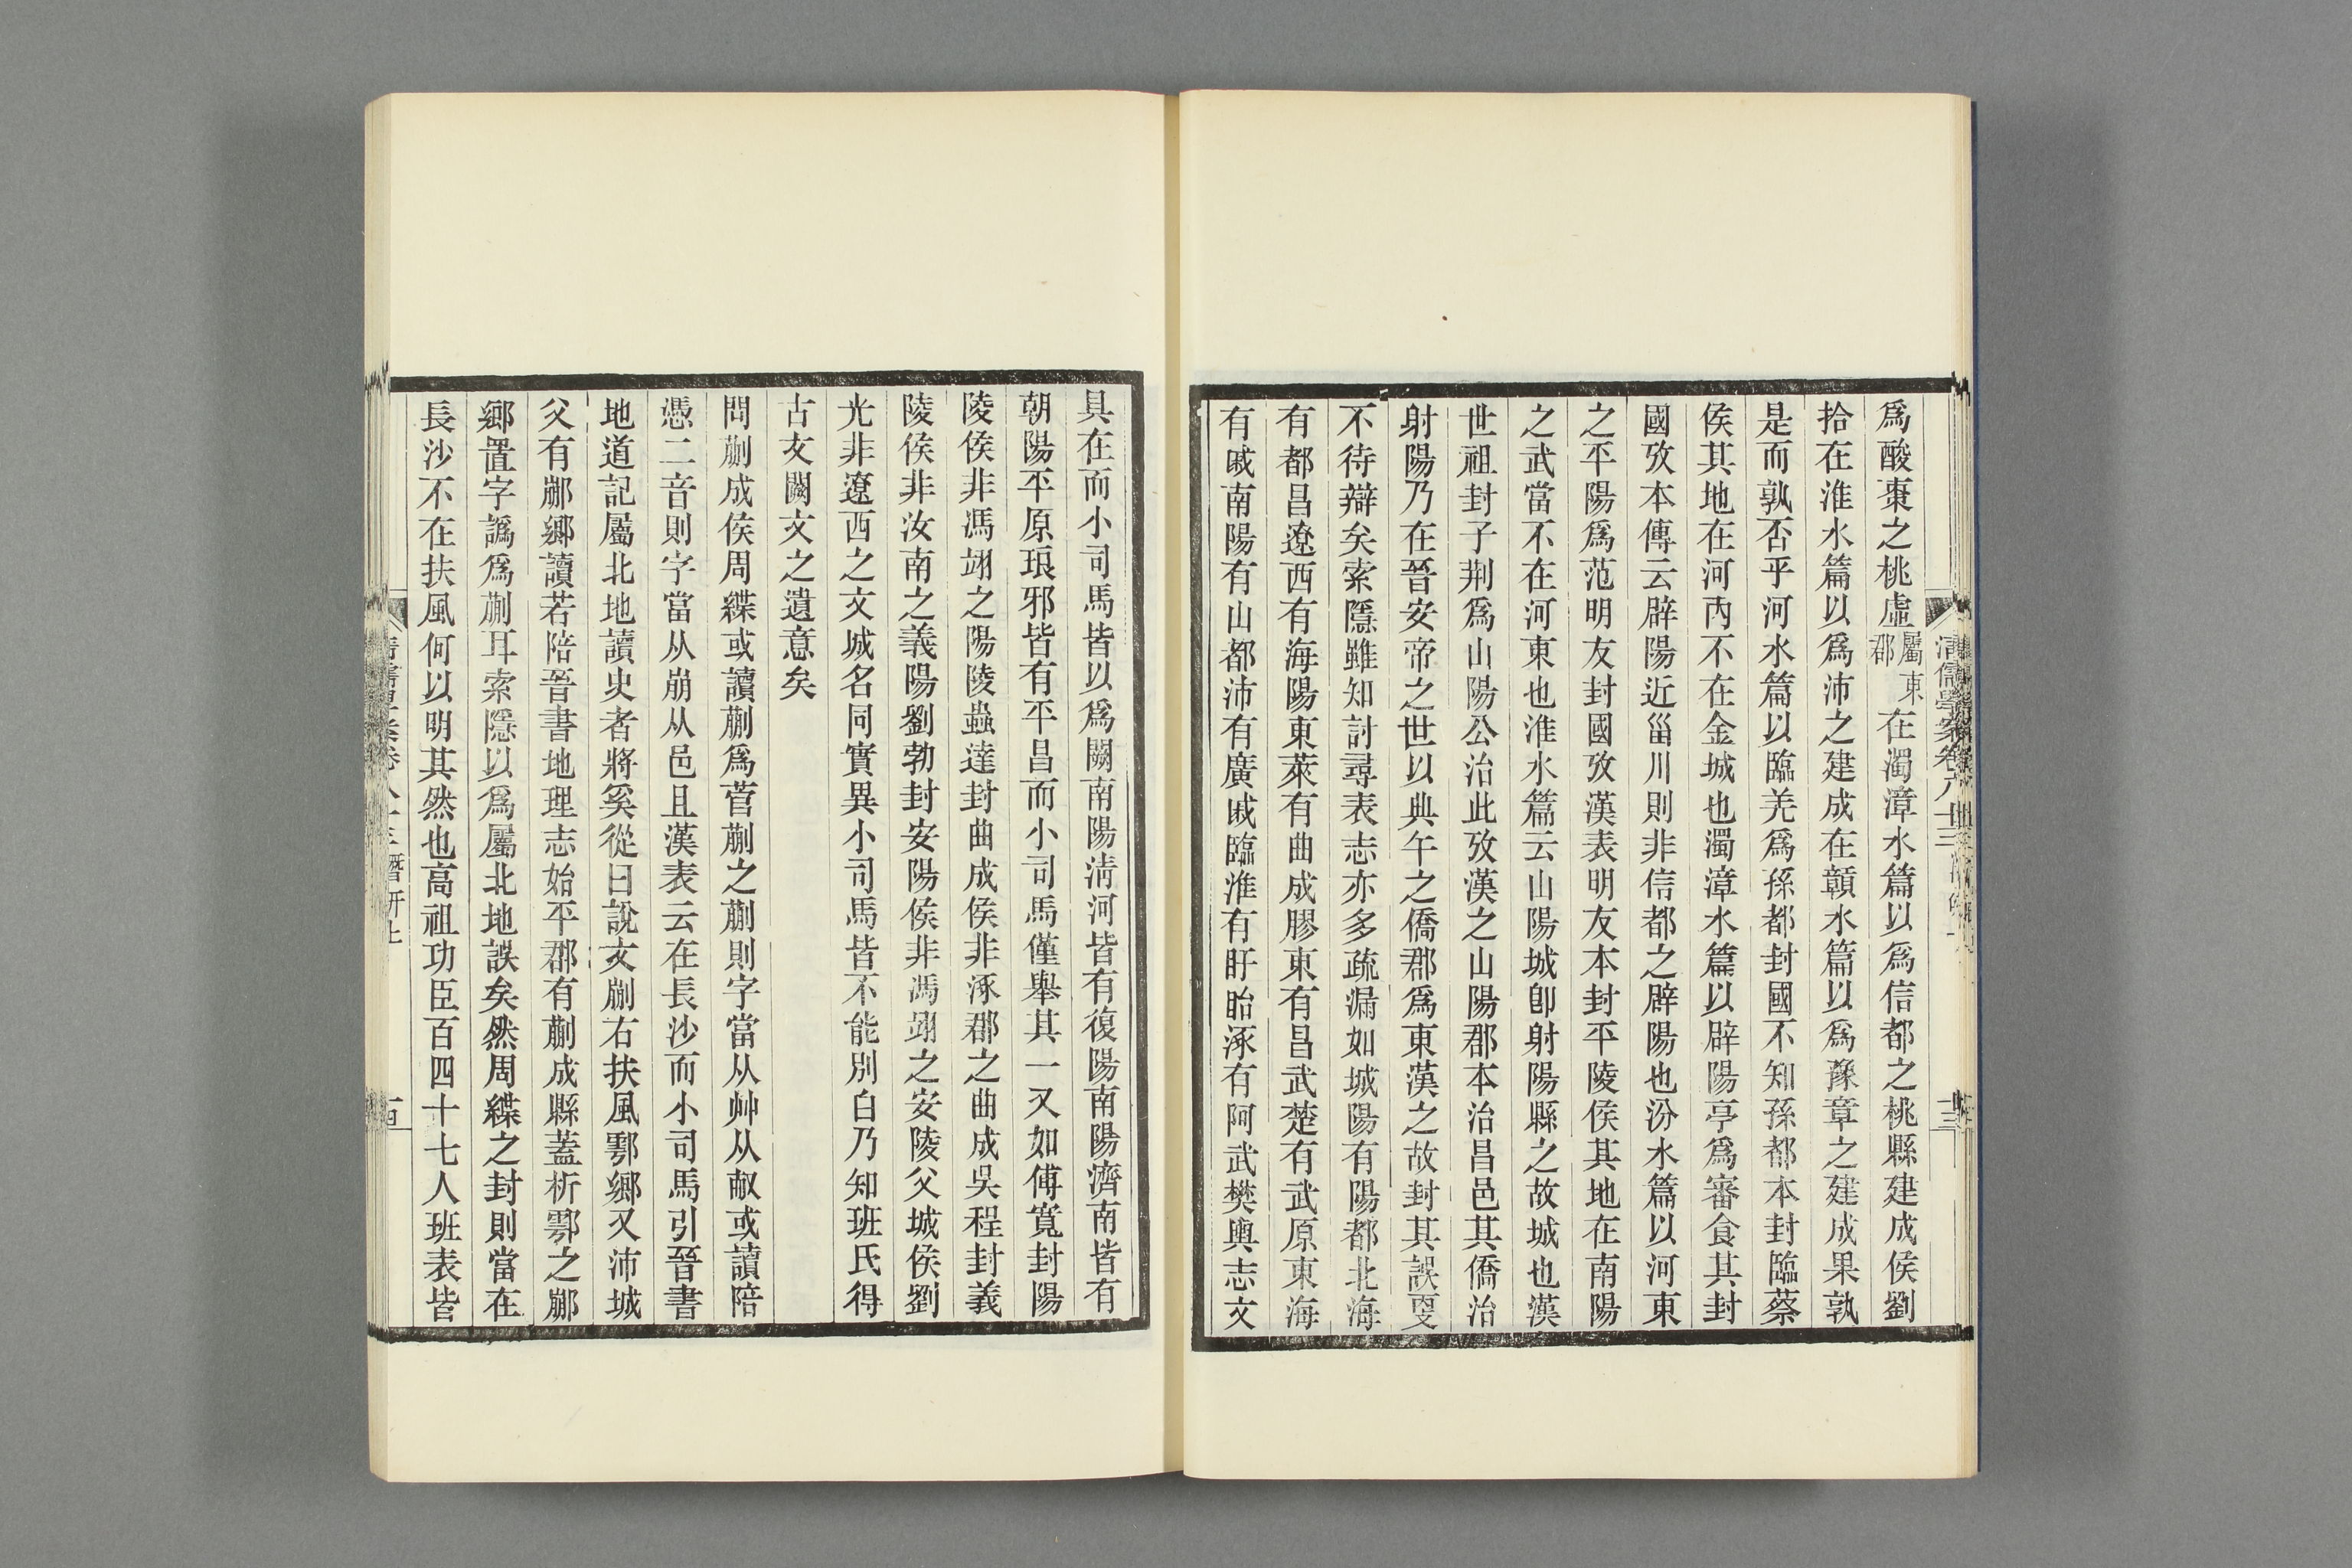 爲酸棗之桃虛屬東郡在濁漳水篇以爲信都之桃縣建成侯劉
拾在淮水篇以爲沛之建成在贛水篇以爲豫章之建成果孰
是而孰否乎河水篇以臨羌爲孫都封國不知孫都本封臨蔡
侯其地在河內不在金城也濁漳水篇以辟陽亭爲審食其封
國攷本傳云辟陽近甾川則非信都之辟陽也汾水篇以河東
之平陽爲范明友封國攷漢表明友本封平陵侯其地在南陽
之武當不在河東也淮水篇云山陽城卽射陽縣之故城也漢
世祖封子荆爲山陽公治此攷漢之山陽郡本治昌邑其僑治
射陽乃在晉安帝之世以典午之僑郡爲東漢之故封其誤更
不待辯矣索隱雖知討尋表志亦多疏漏如城陽有陽都北海
有都昌遼西有海陽東萊有曲成膠東有昌武楚有武原東海
有戚南陽有山都沛有廣戚臨淮有盱眙涿有阿武樊輿志文
清儒學案卷八十三
具在而小司馬皆以爲闕南陽淸河皆有復陽南陽濟南皆有
朝陽平原琅邪皆有平昌而小司馬僅舉其一又如傅寬封陽
陵侯非馮翊之陽陵蟲達封曲成侯非涿郡之曲成吳程封義
陵侯非汝南之義陽劉勃封安陽侯非馮翊之安陵父城侯劉
光非遼西之文城名同實異小司馬皆不能別白乃知班氏得
古文闕文之遺意矣
問蒯成侯周緤或讀蒯爲菅蒯之蒯則字當从艸从㕟或讀陪
憑二音則字當从崩从邑且漢表云在長沙而小司馬引晉書
地道記屬北地讀史者將奚從曰說文䣙右扶風鄠鄉又沛城
父有䣙鄉讀若陪晉書地理志始平郡有蒯成縣蓋析鄠之䣙
鄉置字譌爲蒯耳索隱以爲屬北地誤矣然周緤之封則當在
長沙不在扶風何以明其然也高祖功臣百四十七人班表皆